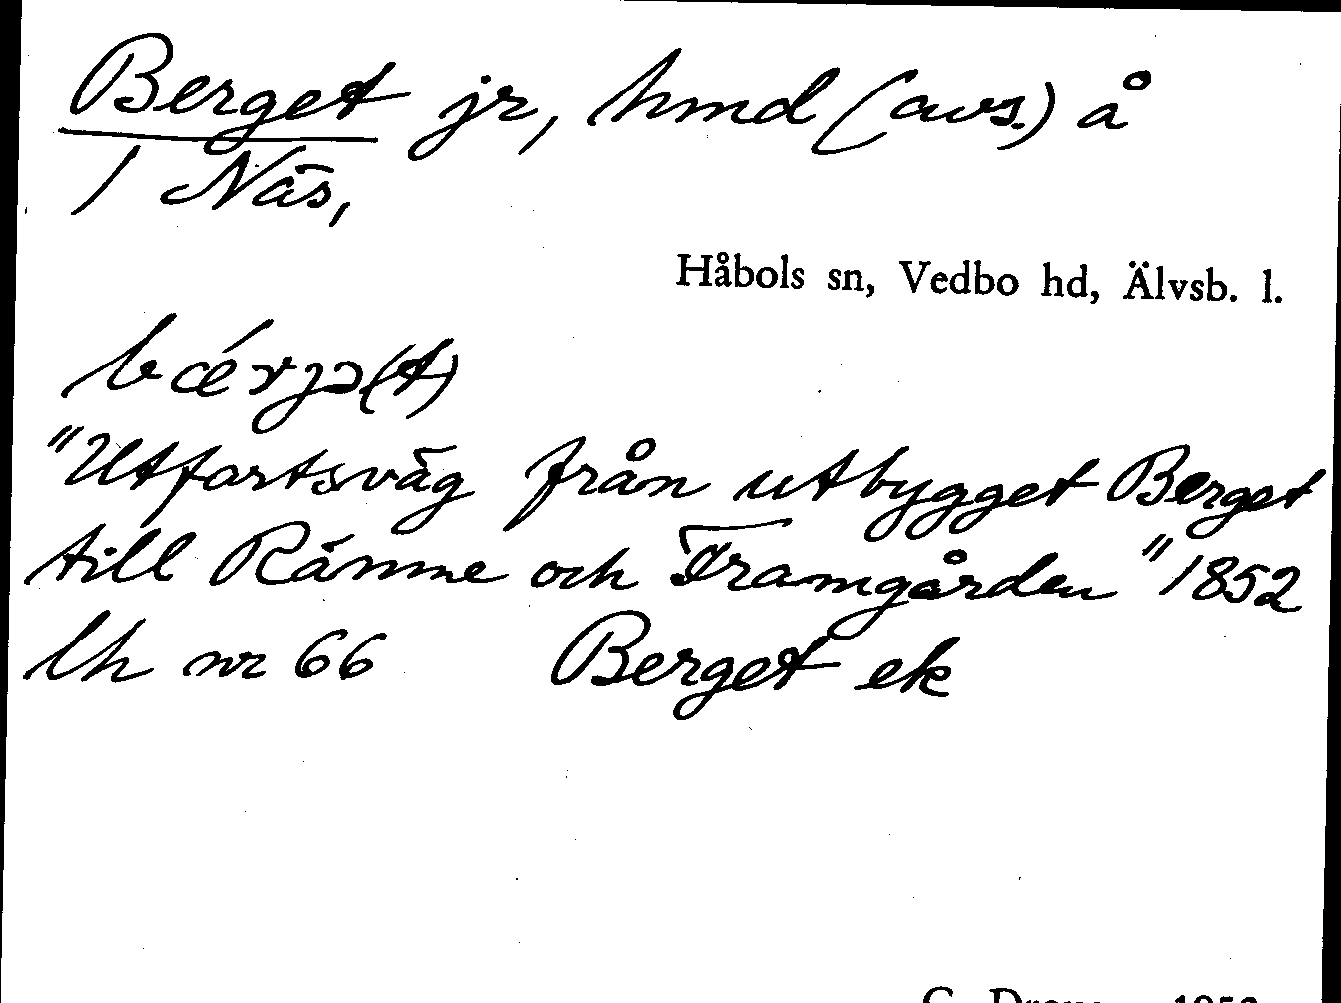 Berget jr, hmd (avs.) å
1 Näs,
Håbols sn, Vedbo hd, Älvsb. l.
bǽrjə(t)
"Utfartsväg från utbygget Berget
till Ränme och Framgården" 1852
lh nr 66 Berget ek